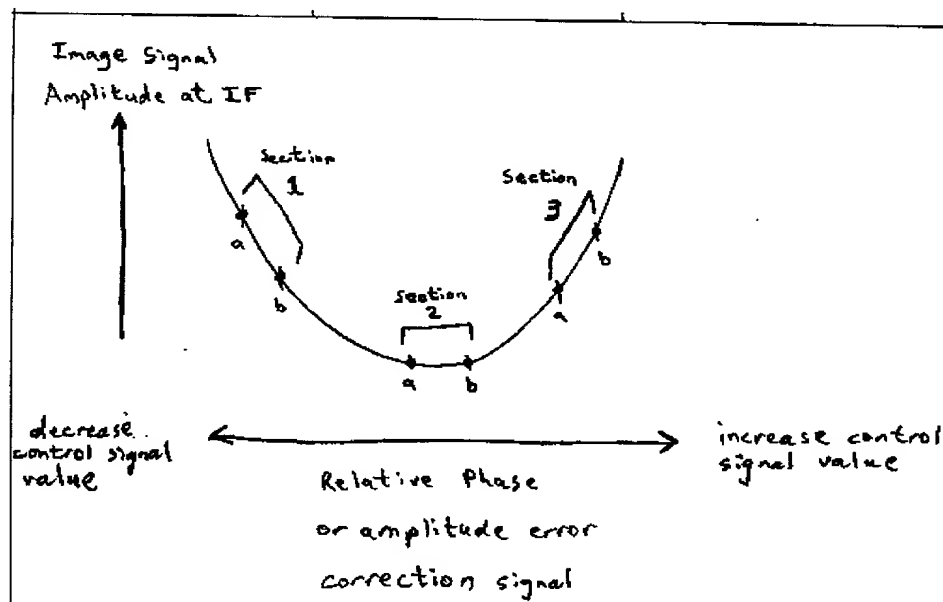 Image Signal
Amplitude at IF
Section
1
Section
3
a
b
b
Section
2
a
a
b
decrease
control signal
value
increase control
signal value
Relative Phase
or amplitude error
correction signal